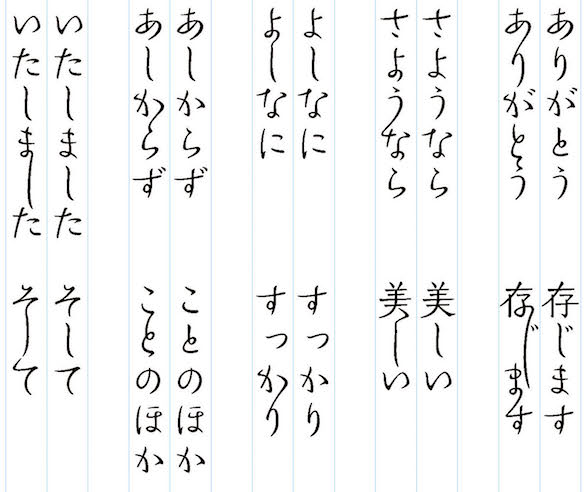 ありがとう
ありがとう
さようなら
さようなら
よしなに
よしなに
あしからず
あしからず
いたしました
いたしました
存じます
存じます
美しい
美しい
すっかり
すっかり
ことのほか
ことのほか
そして
そして